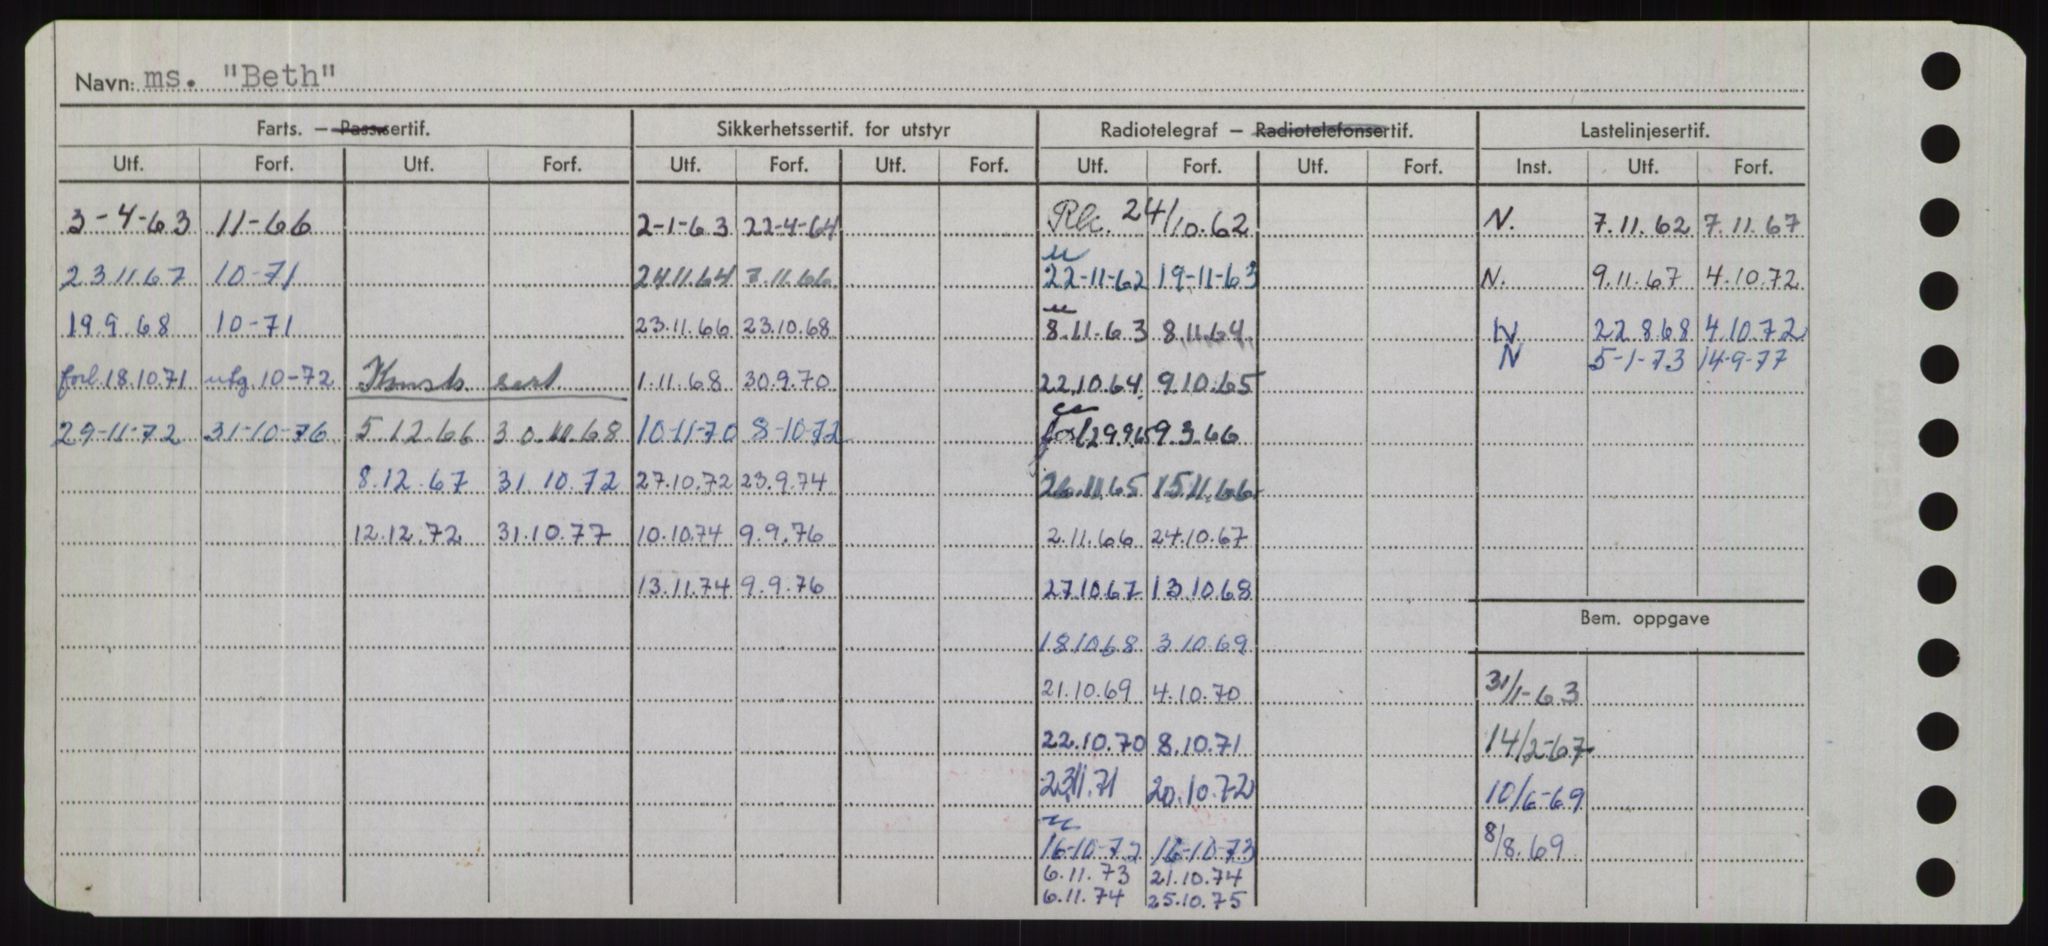 Navn: ms. "Beth"
Farts. — Pass.sertif. Sikkerhetssertif. for utstyr Radiotelegraf — Radiotelefonsertif. Lastelinjesertif.
Utf. Forf. Utf. Forf. Utf. Forf. Utf. Forf. Utf. Forf. Utf. Forf. Inst. Utf. Forf.
3-4-63 11-66 2-1-63 22-4-64 Rbc. 24/10.62 N. 7.11.62 7.11.67
u
23.11.67 10-71 24.11.64 7.11.66 22-11-62 19-11-63 N. 9.11.67 4.10.72
u
19.9.68 10-71 23.11.66 23.10.68 8.11-63 8.11.64. N 22.8.68 4.10.72
N 5-1-73 14-9-77
forl. 18.10.71 utg 10-72 Konstr. sert. 1.11.68 30.9.70 22.10.64 9.10.65
29-11-72 31-10-76 5.12.66 30.11.68 10-11-70 8-10-72 forl 29.9.65 9.3.66
8.12.67 31.10.72 27.10.72 23.9.74 26.11.65 15.11.66
12.12.72 31.10.77 10.10.74 9.9.76 2.11.66 24.10.67
13.11.74 9.9.76 27.10.67 13.10.68
Bem. oppgave
18.10.68 3.10.69
21.10.69 4.10.70 31/1-63
22.10.70 8.10.71 14/2-67
23.11.71 20.10.72 10/6-69
u
16-10-72 16-10-73 8/8.69
6.11.73 21.10.74
6.11.74 25.10.75